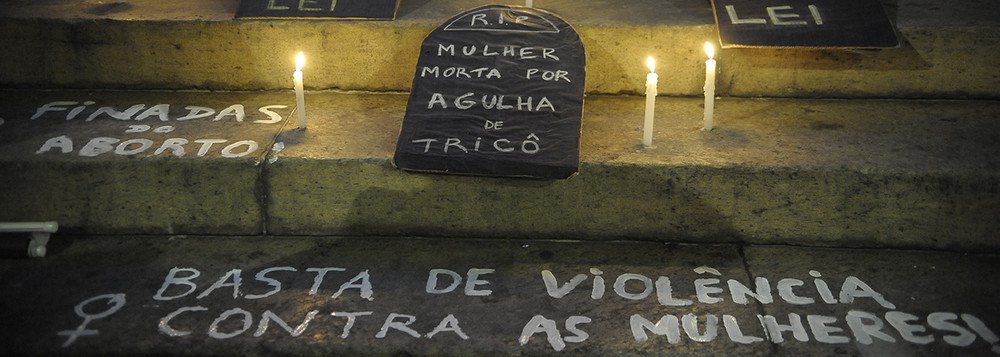 LEI
LEI
R.I.P
MULHER
MORTA POR
AGULHA
DE
TRICÔ
FINADAS
do
ABORTO!
BASTA DE VIOLÊNCIA
CONTRA AS MULHERES!